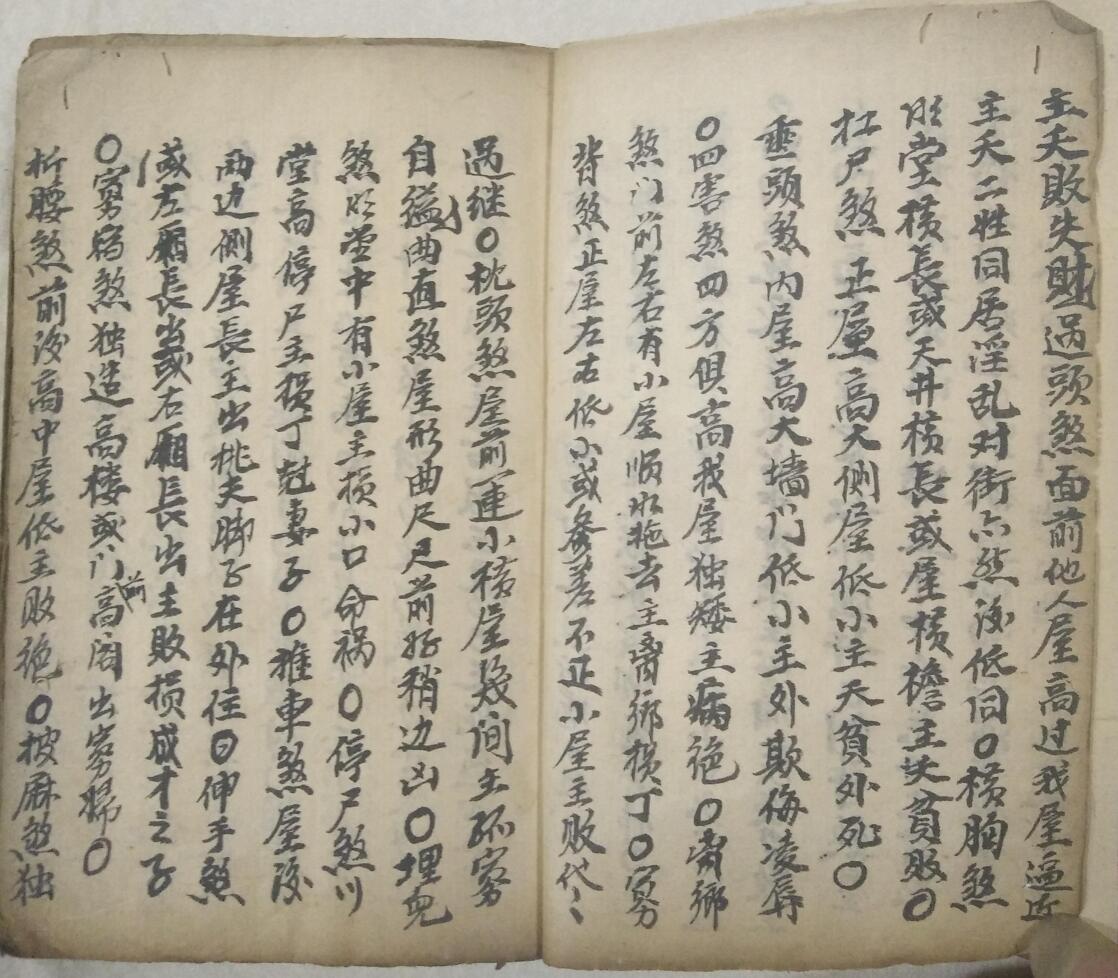 主夭敗失財過頭煞面前他人屋高过我屋逼近
主夭二姓同居淫乱对街亦然後低同〇横胸煞
明堂横長或天井横長或屋横檐主夭貧敗〇
扛尸煞正屋高大侧屋低小主夭貧外死〇
垂頭煞内屋高大墙门低小主外欺侮凌辱
〇四害煞四方俱高我屋独矮主病绝〇离鄉
煞门前左右有小屋順水拖去主离鄉损丁〇寡
背煞正屋左右低小或参差不正小屋主敗代〻
過继〇枕頭煞屋前一連小横屋幾间主孤寡
自缢曲直煞屋形曲尺尺前好稍边凶〇埋児
煞明堂中有小屋主损小口命祸〇停尸煞川
堂高停尸主损丁尅妻子〇推車煞屋後
兩边侧屋長主出挑夫脚子在外住〇伸手煞
或左廂長出或右廂長出主敗损成才之子
〇寡宿煞独造高楼或门前高阁出寡婦〇
折腰煞前後高中屋低主敗绝〇披麻煞独